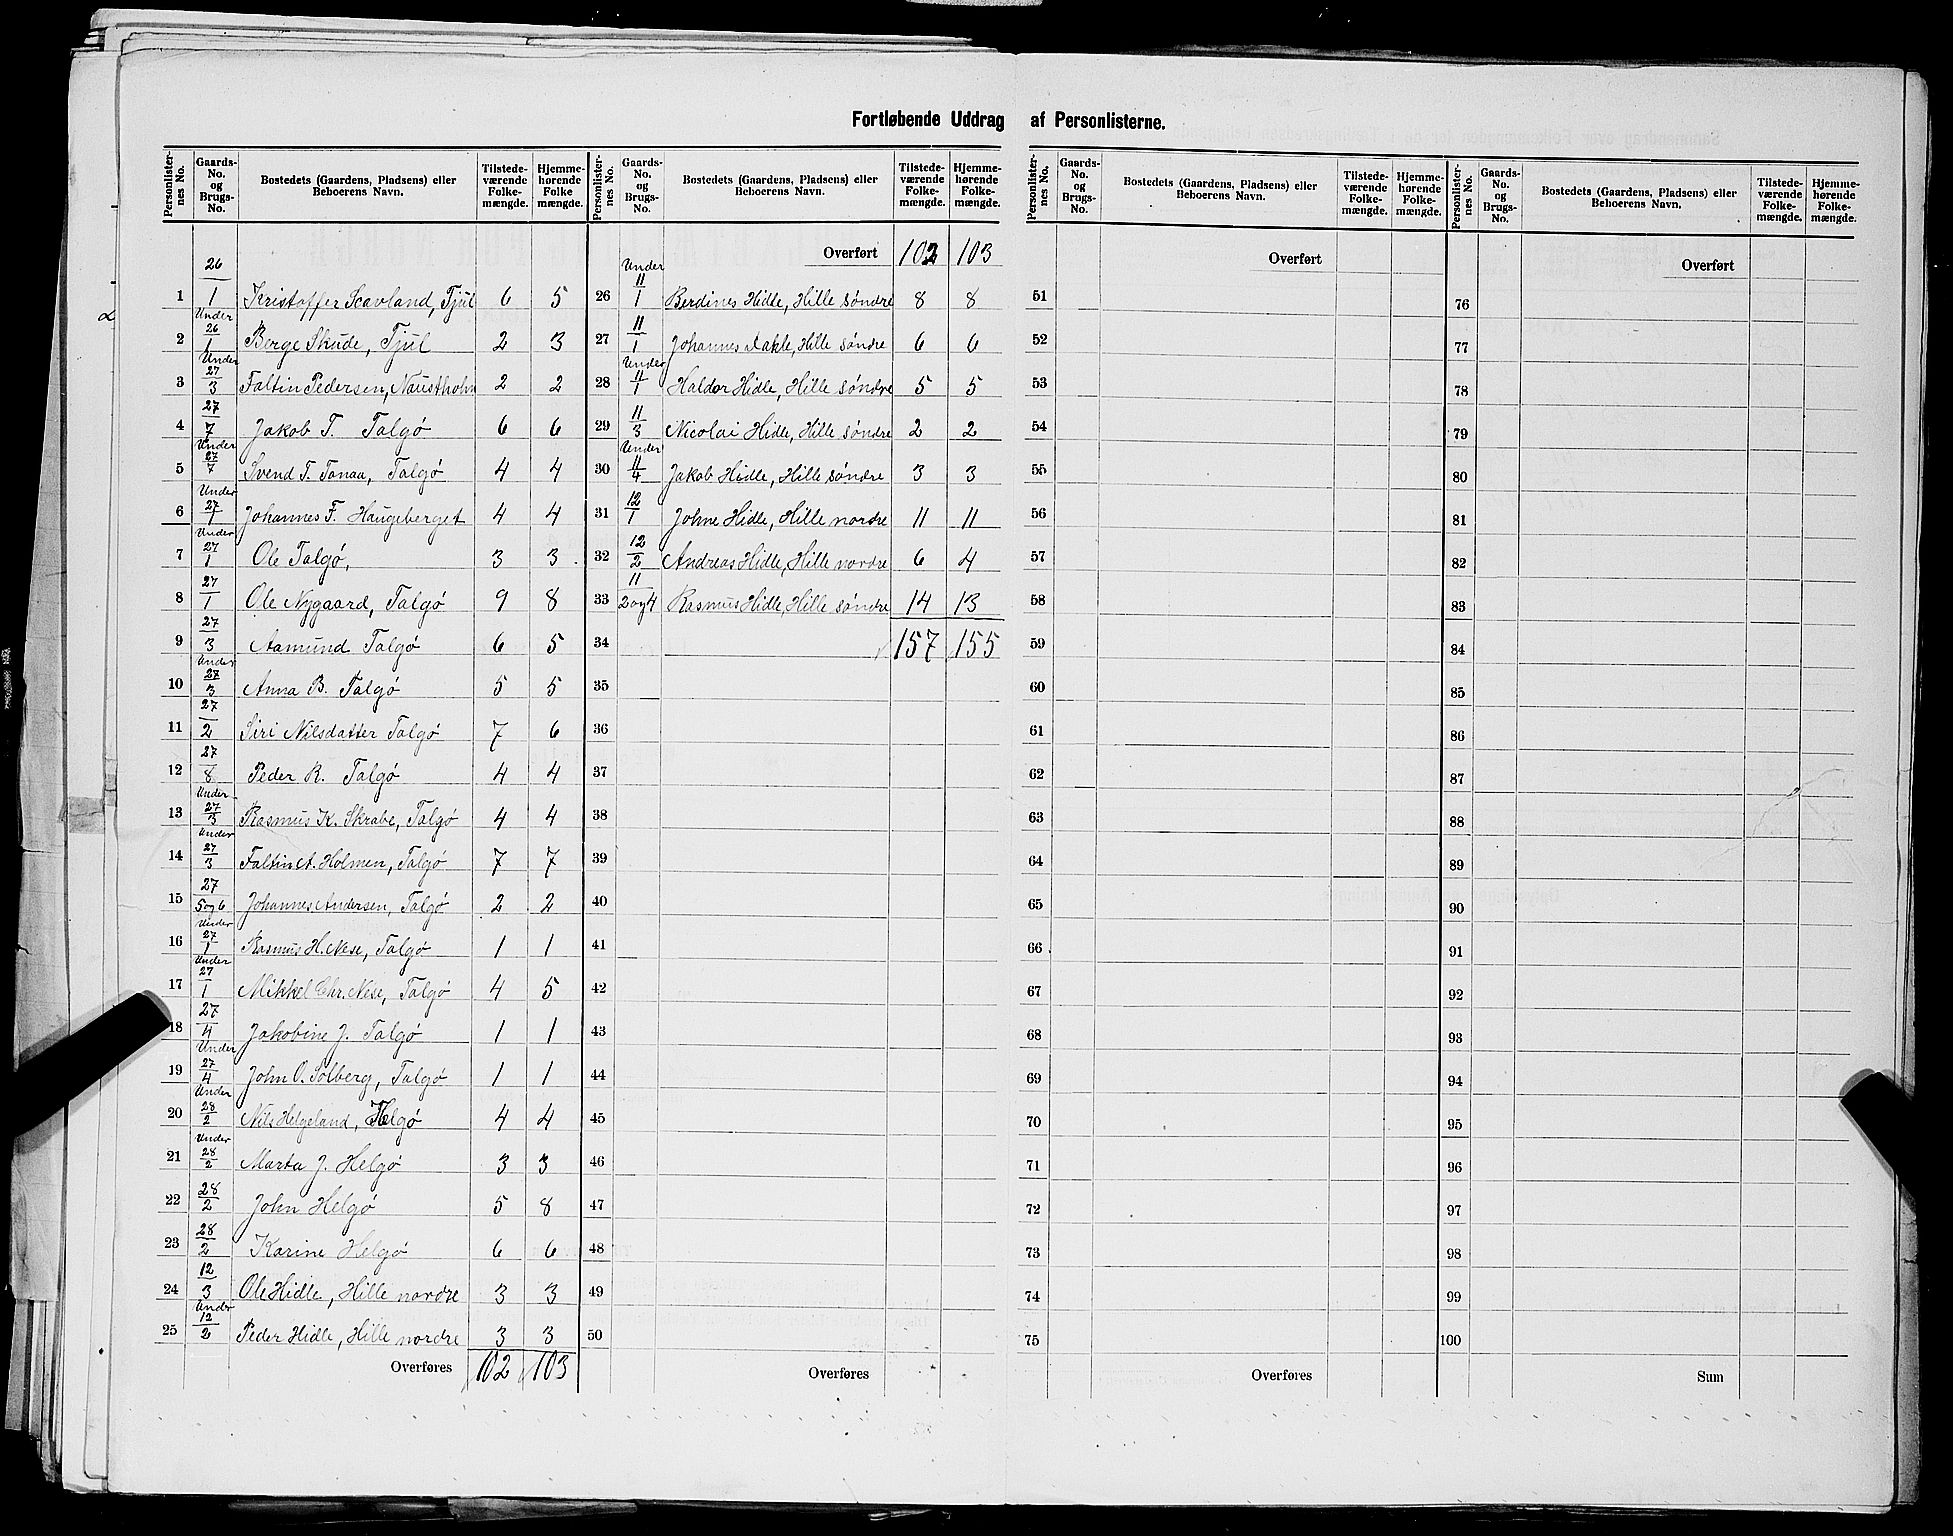 Fortløbende Uddrag af Personlisterne.
Personlisternes No. Gaards-No. og Brugs-No. Bostedets (Gaardens, Pladsens) eller Beboerens Navn. Tilstedeværende Folkemængde. Hjemmehørende Folkemængde.
1 26/1 Kristoffer Scavland, Tjul 6 5
2 Under 26/1 Berge Skude, Tjul 2 3
3 Under 27/3 Faltin Pedersen, Naustholm 2 2
4 27/7 Jakob T. Talgö 6 6
5 Under 27/7 Svend T. Tanaa, Talgö 4 4
6 Under 27/1 Johannes F. Haugeberget 4 4
7 Under 27/1 Ole Talgö, 3 3
8 27/1 Ole Nygaard, Talgö 9 8
9 27/3 Aamund Talgö 6 5
10 Under 27/3 Anna B. Talgö 5 5
11 27/2 Siri Nilsdatter Talgö 7 6
12 27/8 Peder R. Talgö 4 4
13 Under 27/3 Rasmus K. Skrabe, Talgö 4 4
14 Under 27/3 Faltin A. Holmen, Talgö 7 7
15 27/5og6 Johannes Andersen, Talgö 2 2
16 Under 27/1 Rasmus H. Nese, Talgö 1 1
17 Under 27/1 Mikkel Chr. Nese, Talgö 4 5
18 27/4 Jakobine J. Talgö 1 1
19 Under 27/4 John O. Solberg, Talgö 1 1
20 Under 28/2 Nils Helgeland, Helgö 4 4
21 Under 28/2 Marta J. Helgö 3 3
22 28/2 John Helgö 5 8
23 28/2 Karine Helgö 6 6
24 12/3 Ole Hidle, Hille nordre 3 3
25 Under 12/2 Peder Hidle, Hille nordre 3 3
Overføres 102 103
Personlisternes No. Gaards-No. og Brugs-No. Bostedets (Gaardens, Pladsens) eller Beboerens Navn. Tilstedeværende Folkemængde. Hjemmehørende Folkemængde.
Overført 102 103
26 Under 11/1 Berdines Hidle, Hille söndre 8 8
27 11/1 Johannes Dakle, Hille söndre 6 6
28 Under 11/1 Haldor Hidle, Hille söndre 5 5
29 11/3 Nicolai Hidle, Hille söndre 2 2
30 Under 11/4 Jakob Hidle, Hille söndre 3 3
31 12/1 Johne Hidle, Hille nordre 11 11
32 12/2 Andreas Hidle, Hille nordre 6 4
33 11/2og4 Rasmus Hidle, Hille söndre 14 13
34 157 155
35
36
37
38
39
40
41
42
43
44
45
46
47
48
49
50
Overføres
Personlisternes No. Gaards-No. og Brugs-No. Bostedets (Gaardens, Pladsens) eller Beboerens Navn. Tilstedeværende Folkemængde. Hjemmehørende Folkemængde.
Overført
51
52
53
54
55
56
57
58
59
60
61
62
63
64
65
66
67
68
69
70
71
72
73
74
75
Overføres
Personlisternes No. Gaards-No. og Brugs-No. Bostedets (Gaardens, Pladsens) eller Beboerens Navn. Tilstedeværende Folkemængde. Hjemmehørende Folkemængde.
Overført
76
77
78
79
80
81
82
83
84
85
86
87
88
89
90
91
92
93
94
95
96
97
98
99
100
Sum